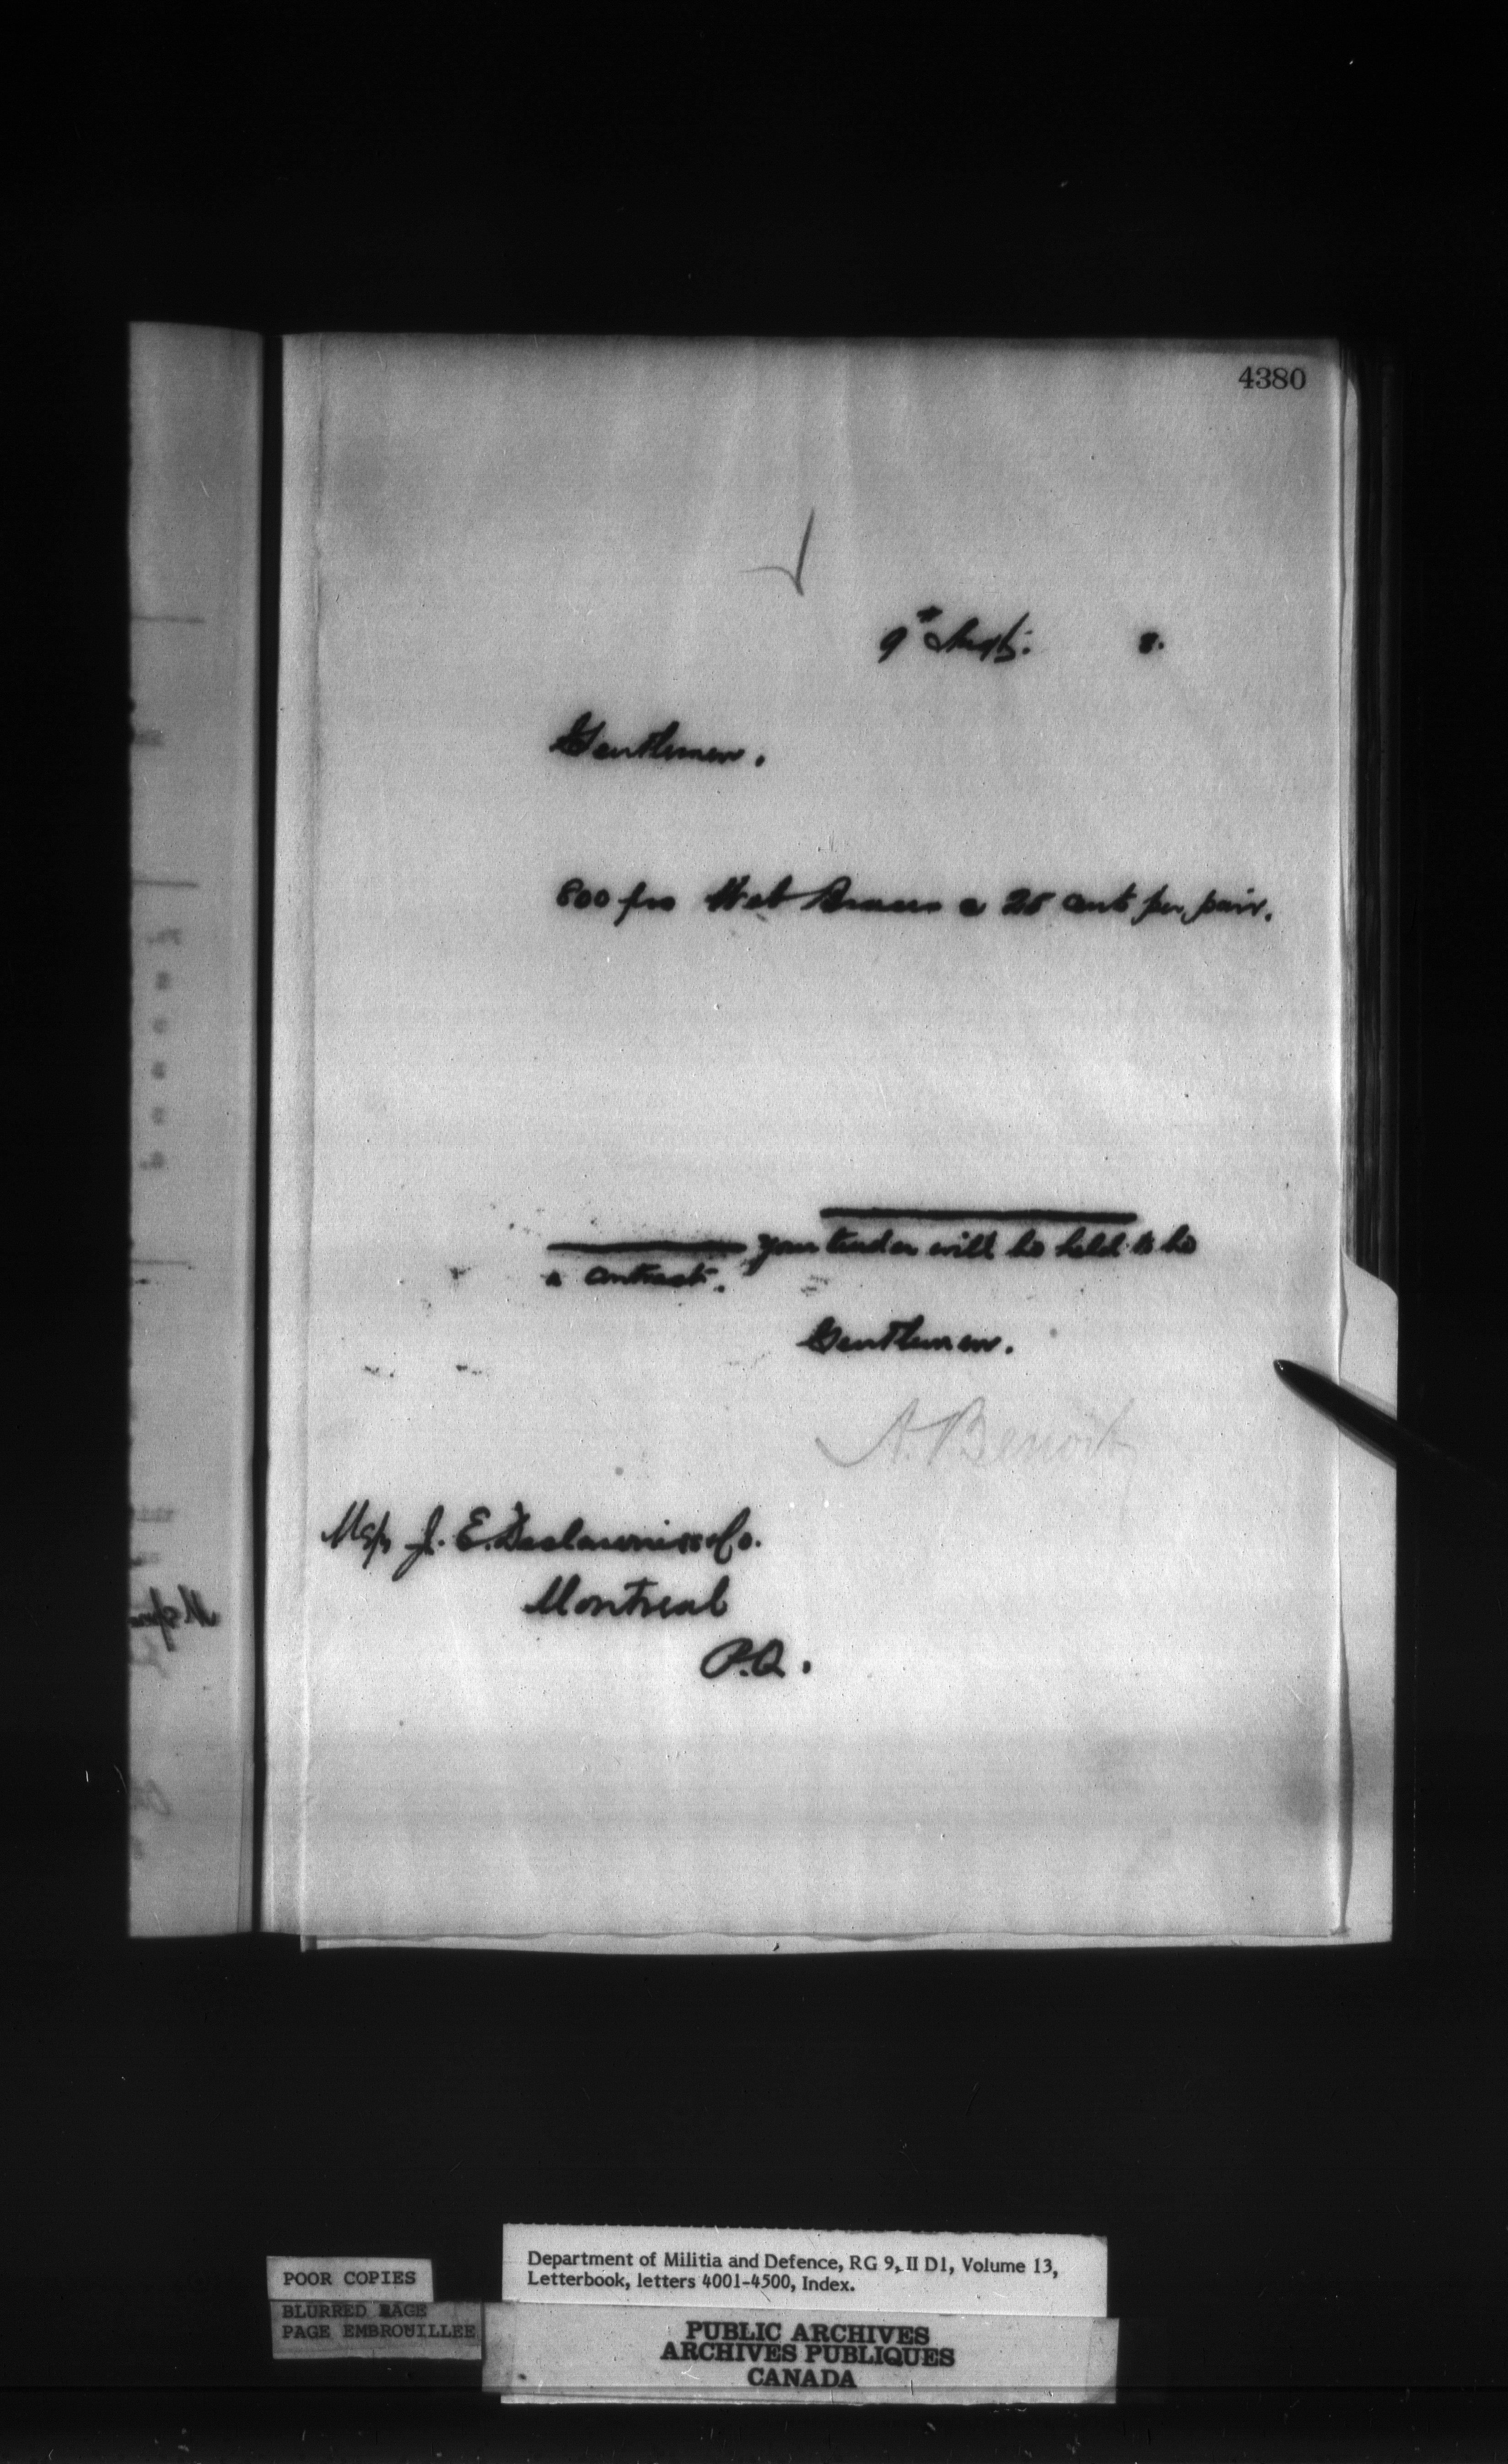 4380
9th Sept. 8.
Gentlemen.
800 prs Web Braces @ 25 cents per pair.
your tender will be held to be
a contract.
Gentlemen.
A. Benoit
J. E. Deslauniers & Co.
Montreal
P.Q.
Department of Militia and Defence, RG 9, II D1, Volume 13,
Letterbook, letters 4001-4500, Index.
POOR COPIES
BLURRED PAGE
PAGE EMBROUILLEE
PUBLIC ARCHIVES
ARCHIVES PUBLIQUES
CANADA